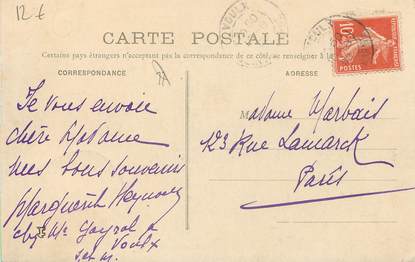 12 €
CARTE POSTALE
Certains pays étrangers n'acceptant pas la correspondance de ce côté, se renseigner à la
CORRESPONDANCE
ADRESSE
Je vous envoie
chère Madame
mes bons souvenirs
Marguerite
chez Mr
Voulx
S et M.
Madame Marbais
123 Rue Lamarck
Paris
10c
POSTES
VOULX